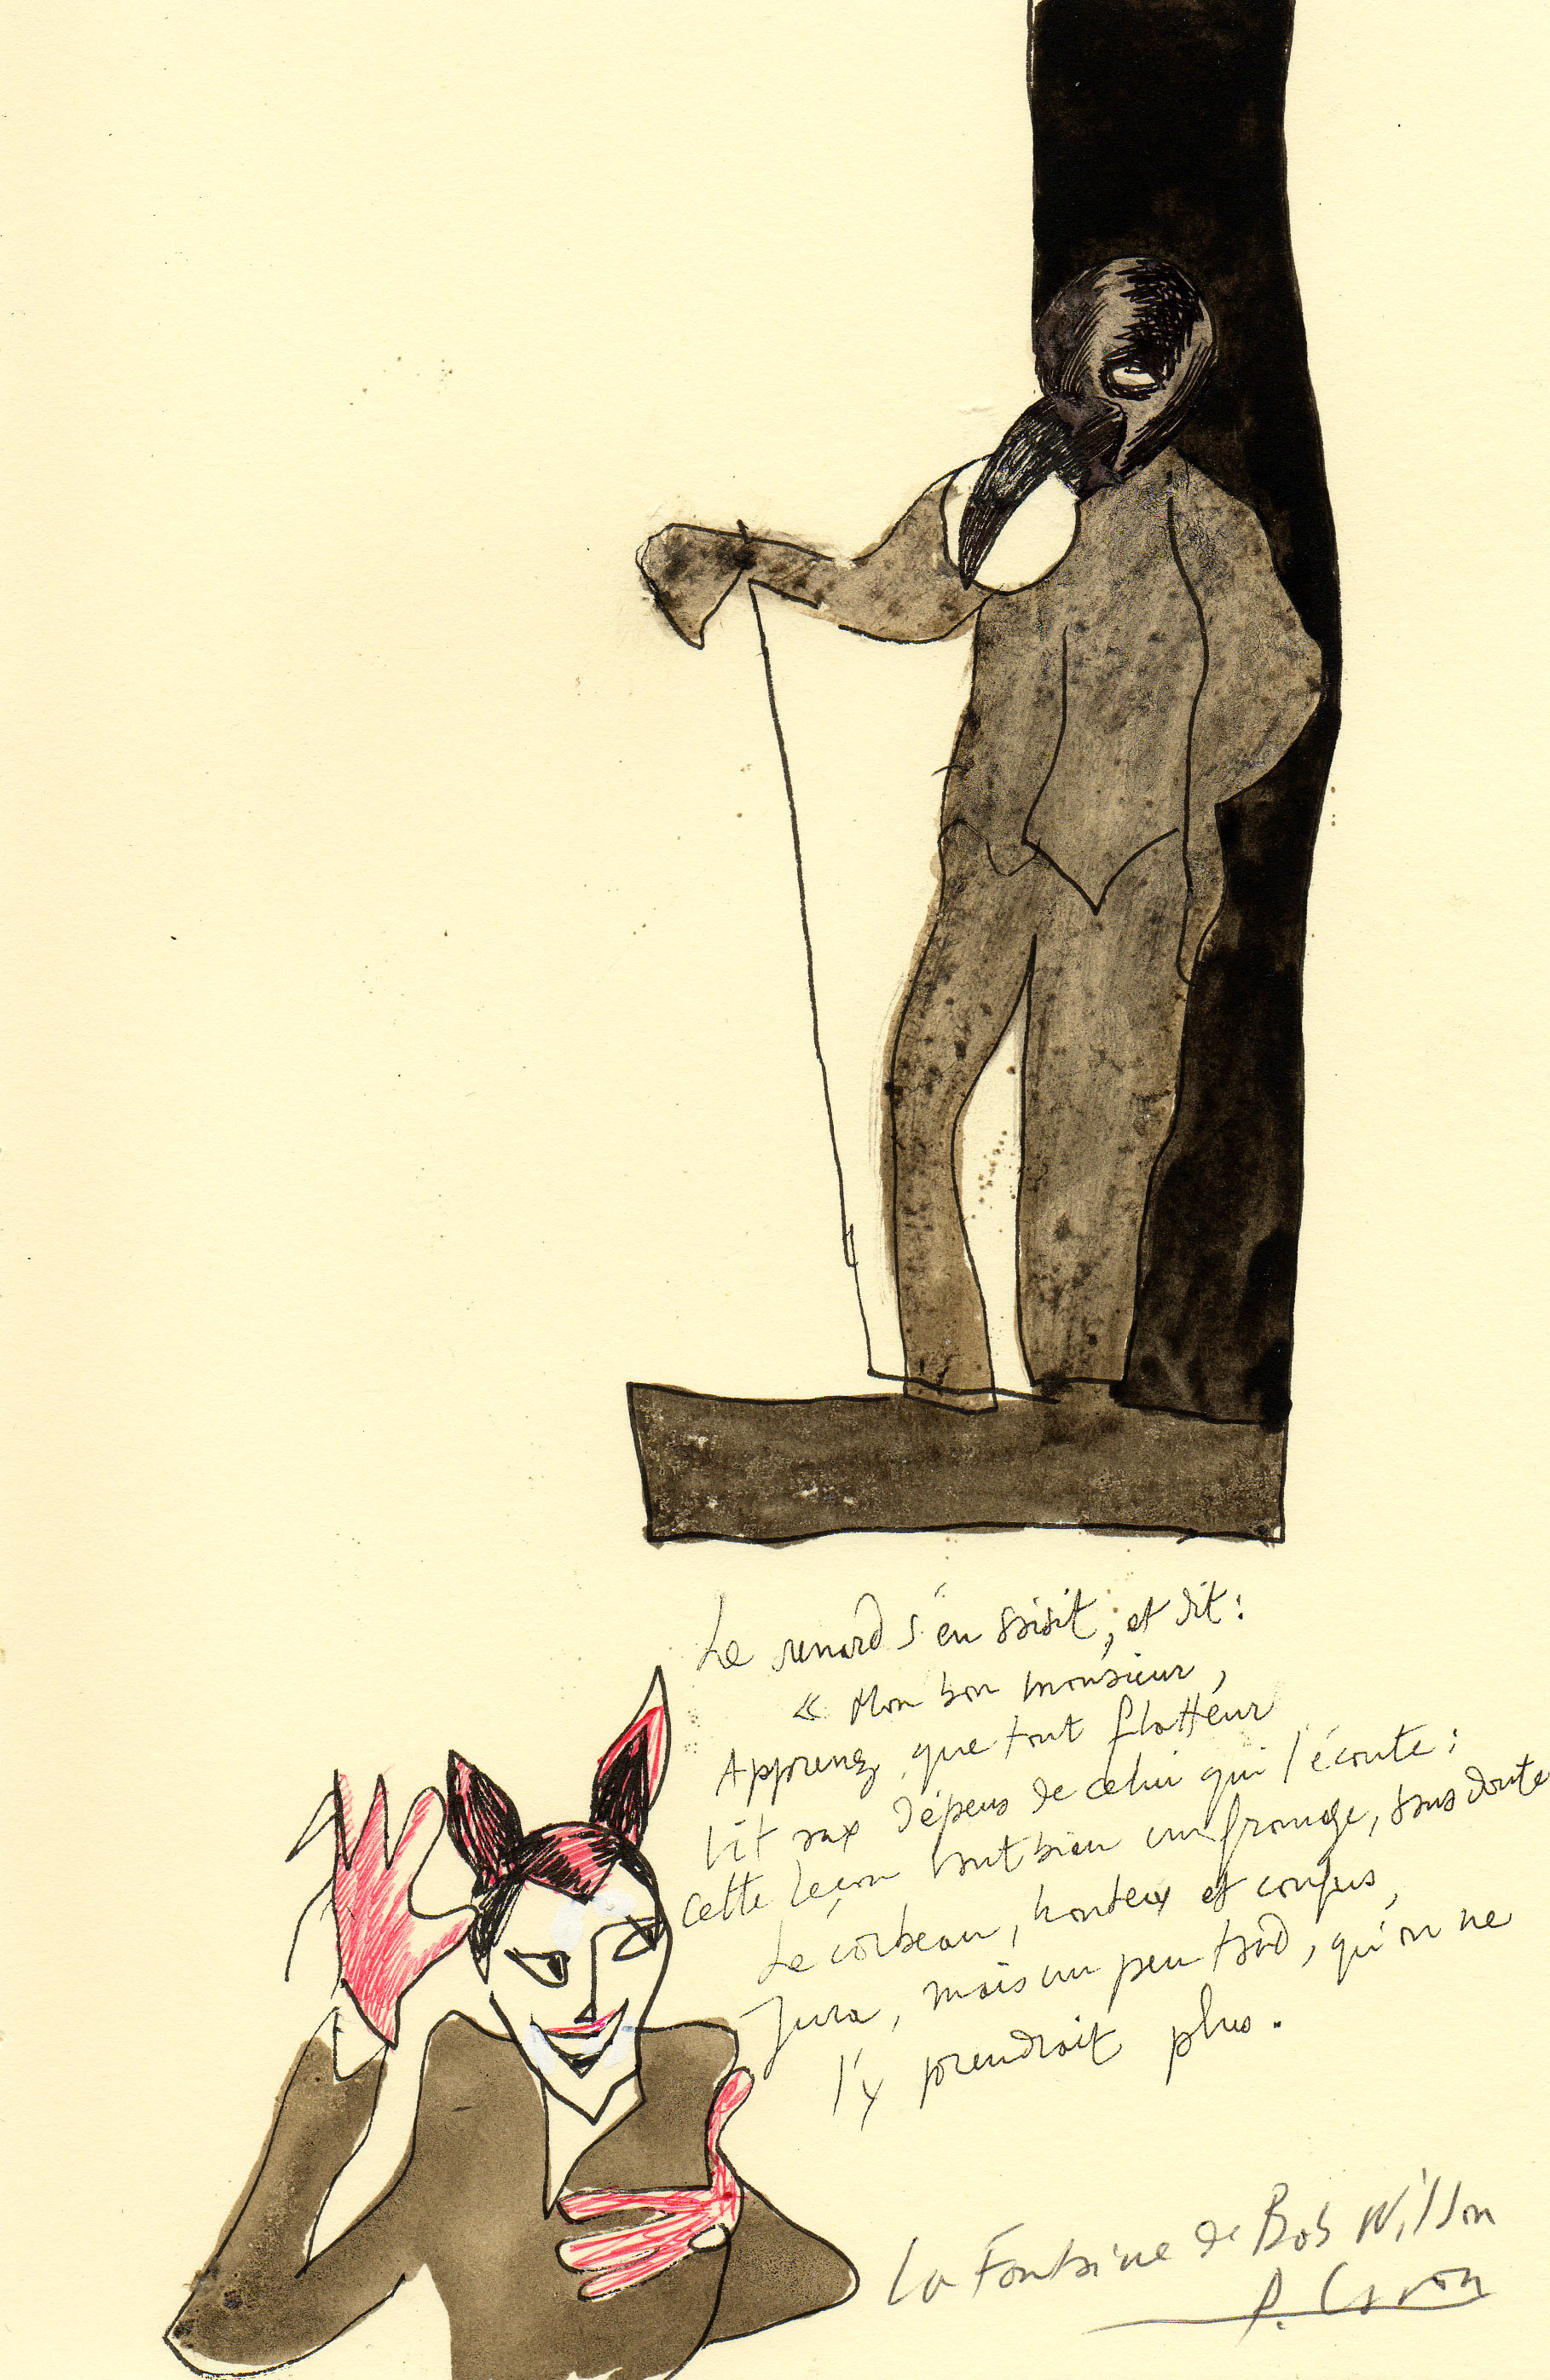 Le renard s'en saisit, et dit :
« Mon bon monsieur,
Apprenez que tout flatteur
Vit aux dépens de celui qui l'écoute :
Cette leçon vaut bien un fromage, sans doute
Le corbeau, honteux et confus,
Jura, mais un peu tard, qu'on ne
l'y prendrait plus.
La Fontaine de Bob Wilson
P. Caron